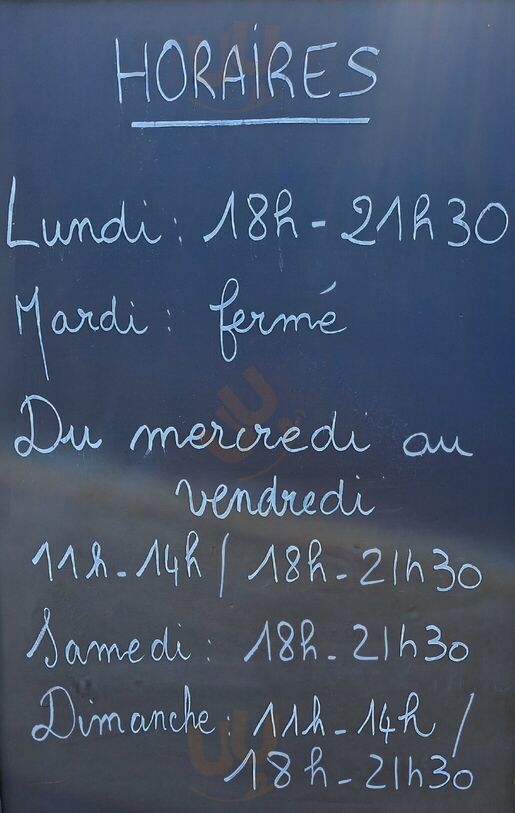 HORAIRES
Lundi : 18h - 21h30
Mardi : fermé
Du mercredi au
vendredi
11h - 14h / 18h - 21h30
Samedi : 18h - 21h30
Dimanche : 11h - 14h /
18h - 21h30